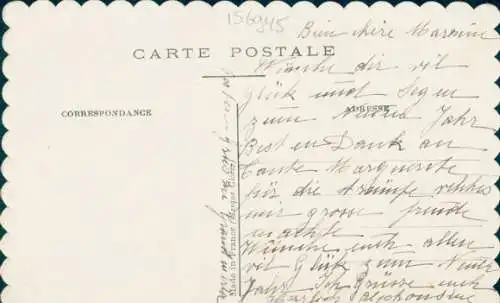 156945
Bien chère Marraine
CARTE POSTALE
Wünsche dir vil
Glük und Segen
CORRESPONDANCE
ADRESSE
zum Neuen Jahr
Besten Dank an
Tante Marguerite
für die strümpfe velches
mir grosse freude
machte
Wünsche euch allen
vil Glük zum Neuen
Jahr Ich Grüsse euch
Made in France